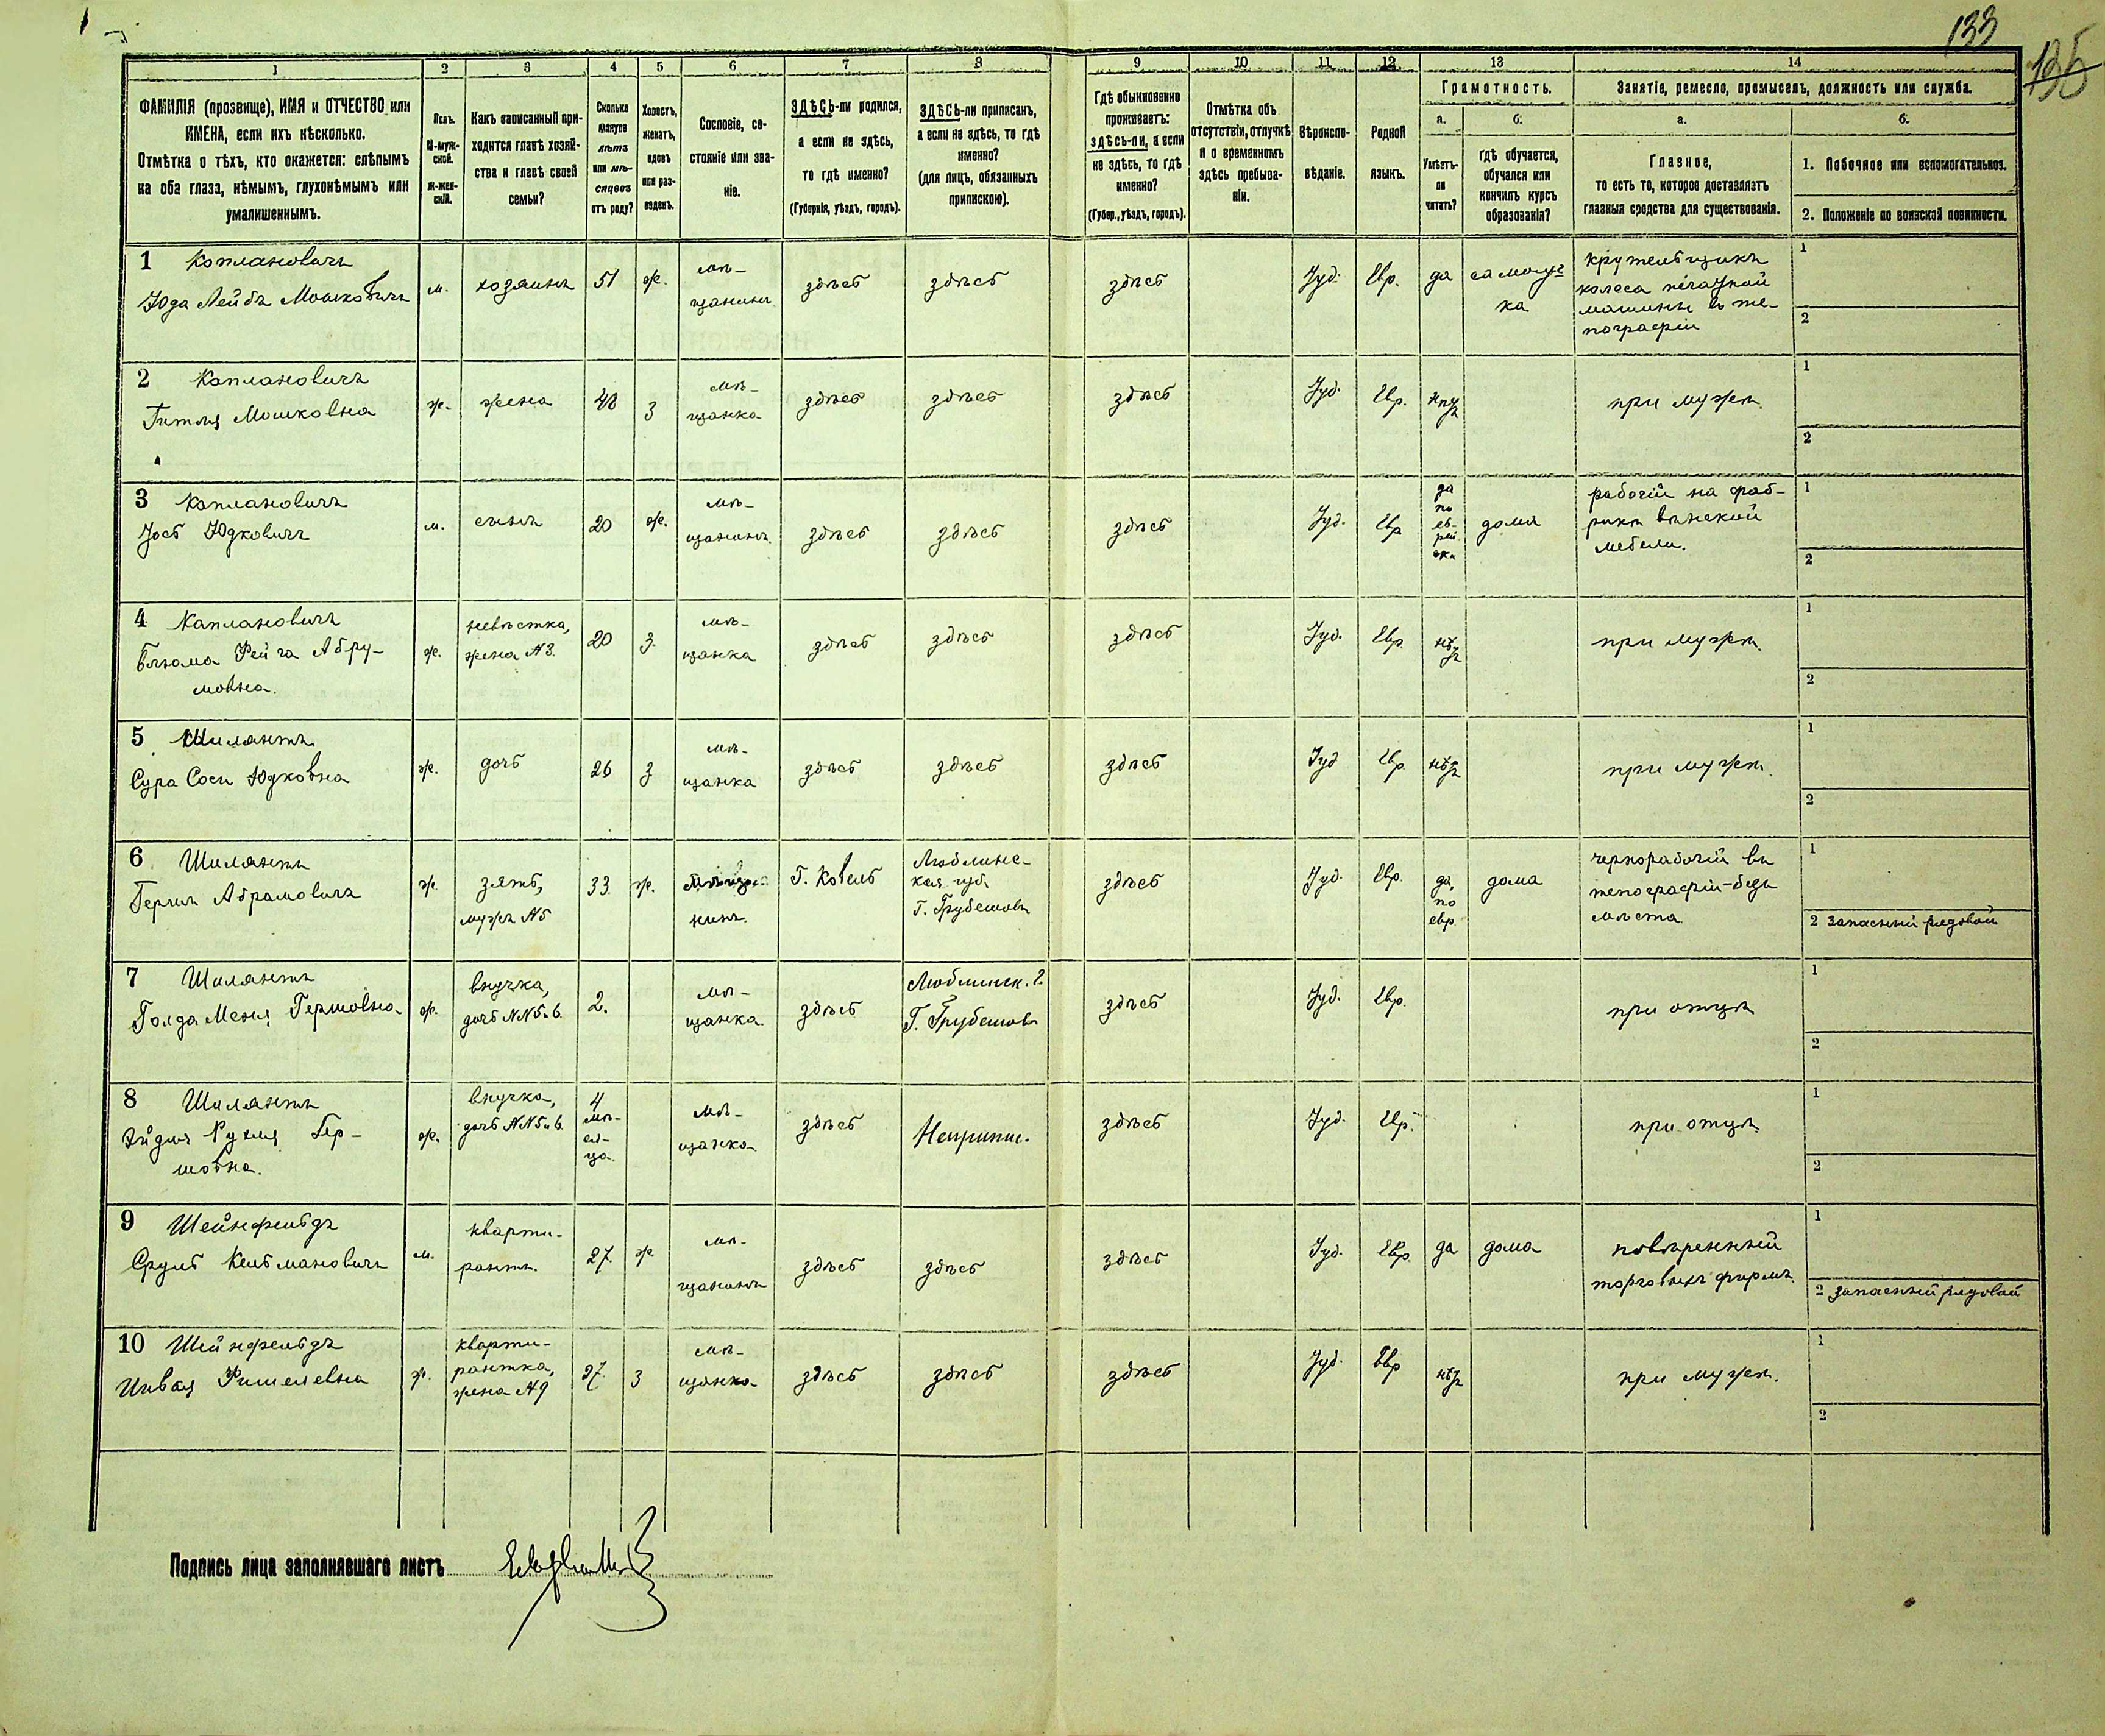 133
135
1
2
3
4
5
6
7
8
9
10
11
12
13
14
ФАМИЛІЯ (прозвище), ИМЯ и ОТЧЕСТВО или
ИМЕНА, если ихъ нѣсколько.
Отмѣтка о тѣхъ, кто окажется: слѣпымъ
на оба глаза, нѣмымъ, глухонѣмымъ или
умалишеннымъ.
Полъ.
М-муж-
ской.
Ж-жен-
скій.
Какъ записанный при-
ходится главѣ хозяй-
ства и главѣ своей
семьи?
Сколько
минуло
лѣтъ
или мѣ-
сяцевъ
отъ роду?
Холостъ,
женатъ,
вдовъ
или раз-
веденъ.
Сословіе, со-
стояніе или зва-
ніе.
ЗДѢСЬ-ли родился,
а если не здѣсь,
то гдѣ именно?
(Губернія, уѣздъ, городъ).
ЗДѢСЬ-ли приписанъ,
а если не здѣсь, то гдѣ
именно?
(для лицъ, обязанныхъ
припискою).
Гдѣ обыкновенно
проживаетъ:
здѣсь-ли, а если
не здѣсь, то гдѣ
именно?
(Губер., уѣздъ, городъ).
Отмѣтка объ
отсутствіи, отлучкѣ
и о временномъ
здѣсь пребыва-
ніи.
Вѣроиспо-
вѣданіе.
Родной
языкъ.
Грамотность.
а.
Умѣетъ-
ли
читать?
б.
гдѣ обучается,
обучался или
кончилъ курсъ
образованія?
Занятіе, ремесло, промыселъ, должность или служба.
а.
Главное,
то есть то, которое доставляетъ
главныя средства для существованія.
б.
1. Побочное или вспомогательное.
2. Положеніе по воинской повинности.
1 Каплановичъ
Юда Лейбъ Мошковичъ
м.
хозяинъ
51
ж.
мѣ-
щанинъ
здѣсь
здѣсь
здѣсь
Іуд.
Евр.
да
самоуч
ка
крутельщикъ
колеса печатной
машины въ ти-
пографіи
1
2
2 Каплановичъ
Гитля Мошковна
ж.
жена
48
З
мѣ-
щанка
здѣсь
здѣсь
здѣсь
Іуд.
Евр.
нѣтъ
при мужѣ.
1
2
3 Каплановичъ
Іось Юдковичъ
м.
сынъ
20
ж.
мѣ-
щанинъ
здѣсь
здѣсь
здѣсь
Іуд.
Евр
да
по
ев-
рей
ски
дома
рабочій на фаб-
рикѣ вѣнской
мебели.
1
2
4 Каплановичъ
Блюма Фейга Абру-
мовна.
ж.
невѣстка,
жена №3.
20
З.
мѣ-
щанка
здѣсь
здѣсь
здѣсь
Іуд.
Евр.
нѣтъ
при мужѣ.
1
2
5 Шилянтъ
Сура Соси Юдковна
ж.
дочь
26
З
мѣ-
щанка
здѣсь
здѣсь
здѣсь
Іуд
Евр.
нѣтъ
при мужѣ.
1
2
6 Шилянтъ
Гершъ Абрамовичъ
ж.
зять,
мужъ №5
33
ж.
мѣща-
нинъ.
Г. Ковель
Люблинс-
кая губ.
Г. Грубешовъ
здѣсь
Іуд.
Евр.
да,
по
евр.
дома
чернорабочій въ
типографіи-безъ
мѣста
1
2 Запасный рядовой
7 Шилянтъ
Голда Меня Гершовна
ж.
внучка,
дочь №№5 и 6
2.
мѣ-
щанка.
здѣсь
Люблинск. г.
Г. Грубешовъ
здѣсь
Іуд.
Евр.
при отцѣ
1
2
8 Шилянтъ
Эйдля Рухля Гер-
шовна.
ж.
внучка,
дочь №№5 и 6
4
мѣ-
ся-
ца.
мѣ-
щанка
здѣсь
Неприпис.
здѣсь
Іуд.
Евр.
при отцѣ.
1
2
9 Шейнфельдъ
Сруль Кельмановичъ
м.
кварти-
рантъ.
27.
ж
мѣ-
щанинъ
здѣсь
здѣсь
здѣсь
Іуд.
Евр.
да
дома
повѣренный
торговыхъ фирмъ.
1
2 Запасный рядовой
10 Шейнфельдъ
Фишелевна
ж.
кварти-
рантка,
жена №9
27.
З
мѣ-
щанка
здѣсь
здѣсь
здѣсь
Іуд.
Евр
нѣтъ
при мужѣ.
1
2
Подпись лица заполнявшаго листъ